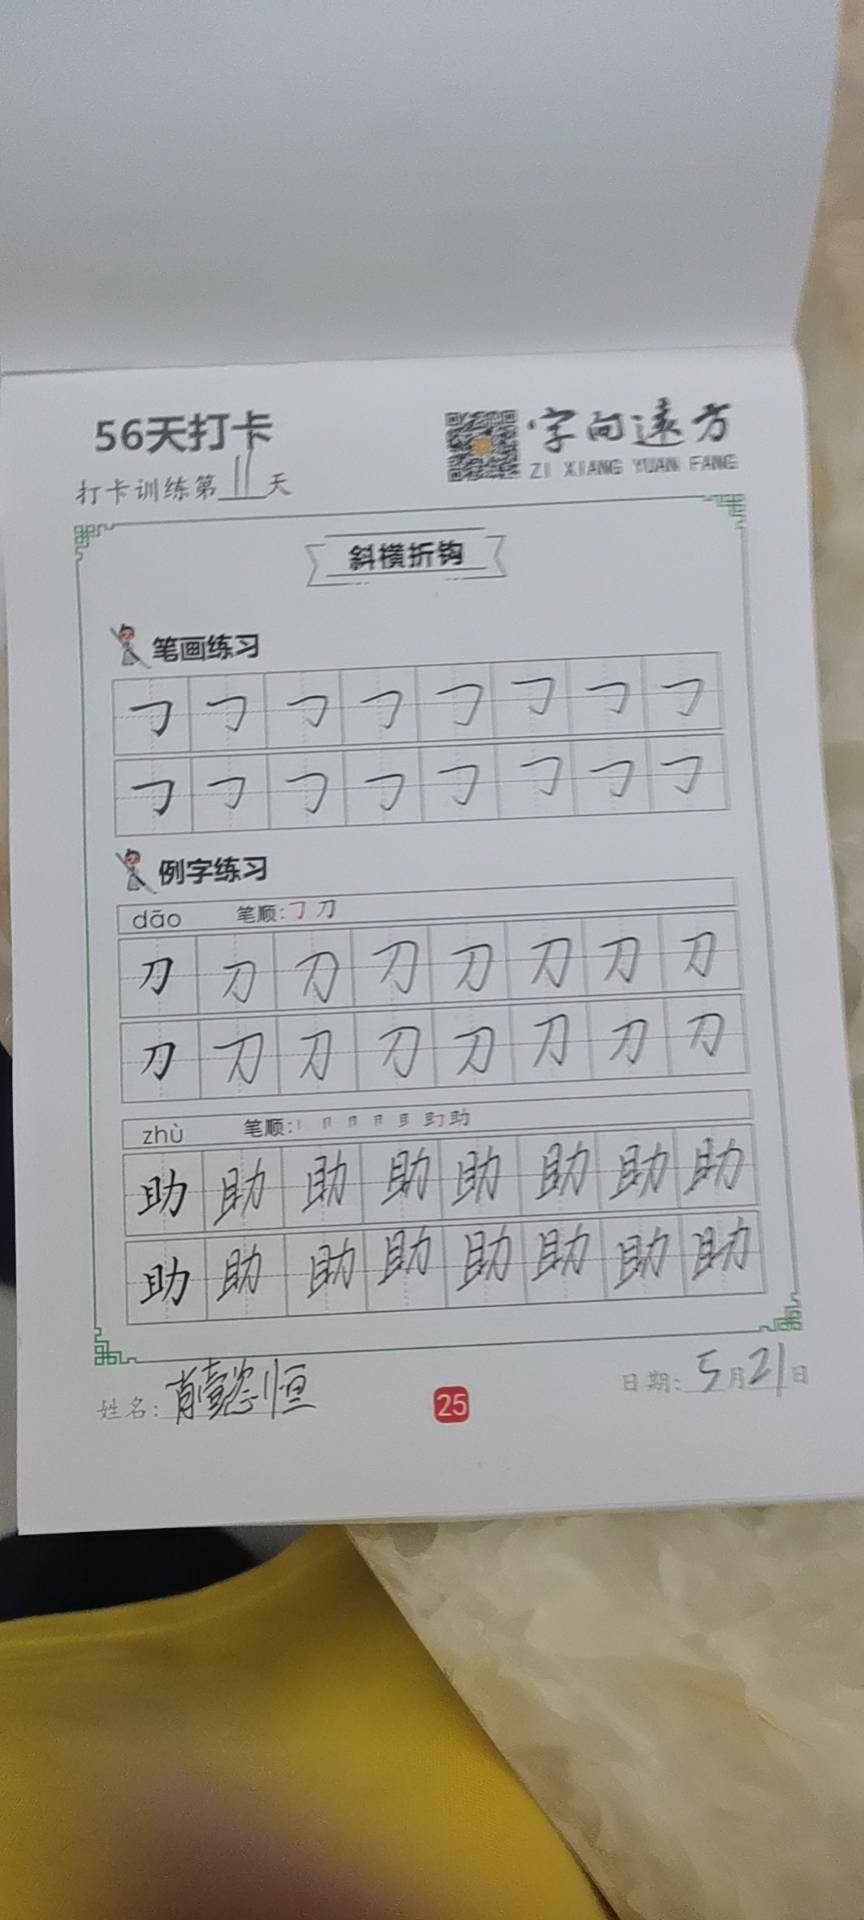 56天打卡
字向远方
ZI XIANG YUAN FANG
打卡训练第11天
斜横折钩
笔画练习
㇆㇆㇆㇆㇆㇆㇆㇆
㇆㇆㇆㇆㇆㇆㇆㇆
例字练习
dāo 笔顺:㇆刀
刀刀刀刀刀刀刀刀
刀刀刀刀刀刀刀刀
zhù 笔顺: 助
助助助助助助助助
助助助助助助助助
姓名:肖懿恒
25
日期:5月21日